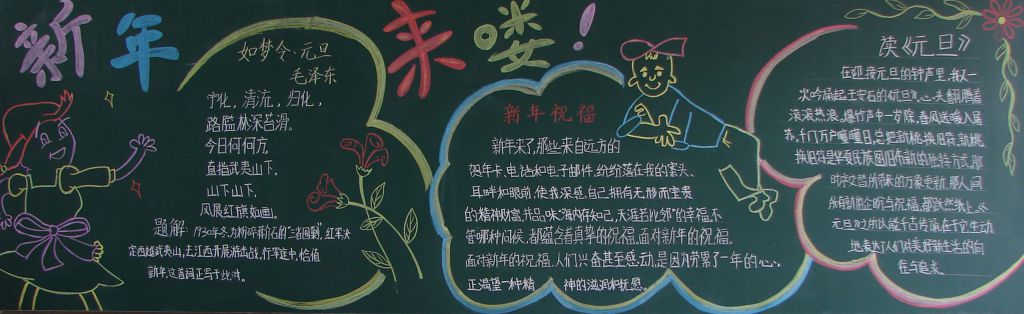 新年来喽!
如梦令·元旦
毛泽东
宁化，清流，归化，
路隘林深苔滑。
今日何何方，
直指武夷山下，
山下山下，
风展红旗如画。
题解：1930年冬,为粉碎蒋介石的"三省围剿",红军决
定西越武夷山，去江西开展游击战,行军途中,恰值
新年,这首词正写于此时。
新年祝福
新年来了,那些来自远方的
贺年卡、电话和电子邮件,纷纷落在我的案头、
耳畔和眼前,使我深感自己拥有无形而宝贵
的精神财富,共品味"海内存知己,天涯若比邻"的幸福,不
管哪种问候,都蕴含着真挚的祝福,面对新年的祝福。
面对新年的祝福,人们兴奋甚至感动,是因为劳累了一年的心,
正渴望一种精神的滋润和抚慰。
读《元旦》
在迎接元旦的钟声里,我又一
次吟诵起王安石的《元旦》。心头翻腾着
滚滚热浪。爆竹声中一岁除,春风送暖入屠
苏,千门万户曈曈日,总把新桃换旧符。新桃
换旧符是华夏民族固有的
时交替所带来的万象更新,那人间
元旦》之所以能千古传诵在于它生动
地表达了人们对美好新生活的向
往与追求